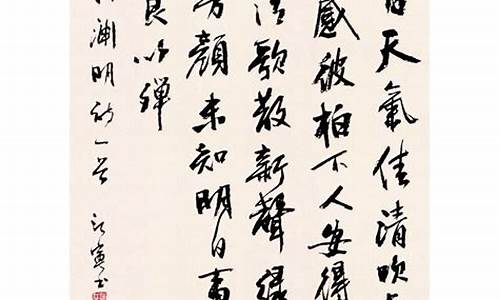 日天氣佳清吹
感彼柏下人安得
清歌散新聲緑
芳顔未知明日事
良以殫
淵明詩一首 書